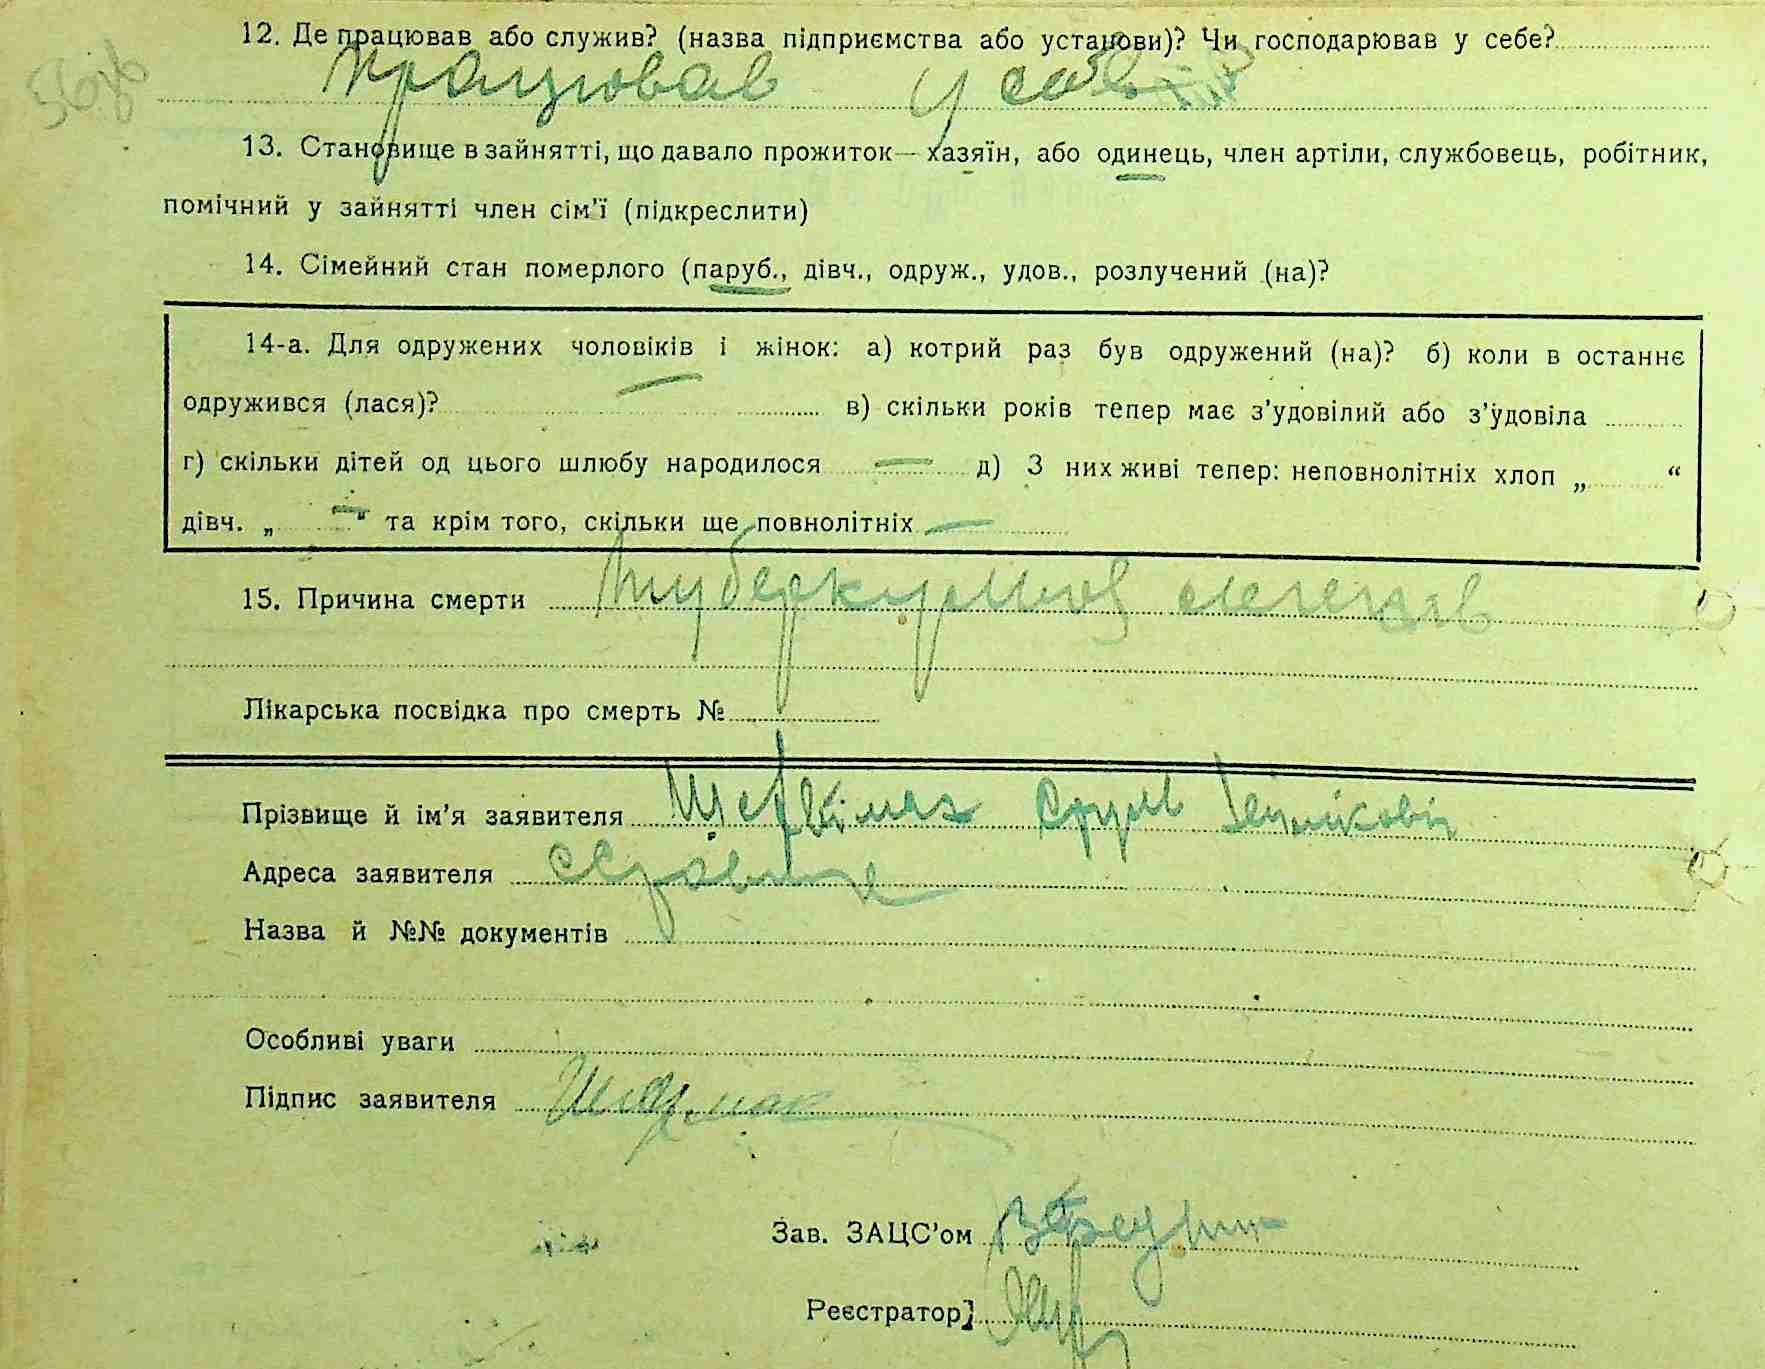 56зв
12. Де працював або служив? (назва підприємства або установи)? Чи господарював у себе?
Працював у себе
13. Становище в зайнятті, що давало прожиток — хазяїн, або одинець, член артіли, службовець, робітник,
помічний у зайнятті член сім'ї (підкреслити)
14. Сімейний стан померлого (паруб., дівч., одруж., удов., розлучений (на)?
14-а. Для одружених чоловіків і жінок: а) котрий раз був одружений (на)? б) коли в останнє
одружився (лася)? — в) скільки років тепер має з'удовілий або з'удовіла
г) скільки дітей од цього шлюбу народилося — д) З них живі тепер: неповнолітніх хлоп „ “
дівч. „ — “ та крім того, скільки ще повнолітніх —
15. Причина смерти Туберкульоз легенів
Лікарська посвідка про смерть №
Прізвище й ім'я заявителя Сруль
Адреса заявителя
Назва й №№ документів
Особливі уваги
Підпис заявителя
Зав. ЗАЦС'ом
Реєстратор